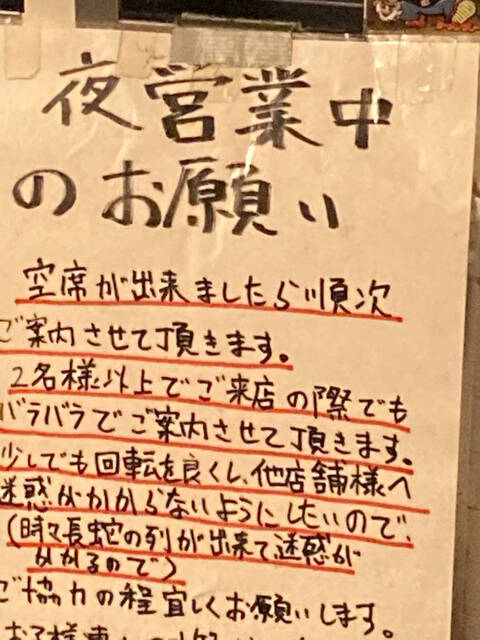 夜営業中
のお願い
空席が出来ましたら順次
ご案内させて頂きます。
2名様以上でご来店の際でも
バラバラでご案内させて頂きます。
少しでも回転を良くし、他店舗様へ
迷惑がかからないようにしたいので、
(時々長蛇の列が出来て迷惑が
かかるので)
ご協力の程宜しくお願いします。